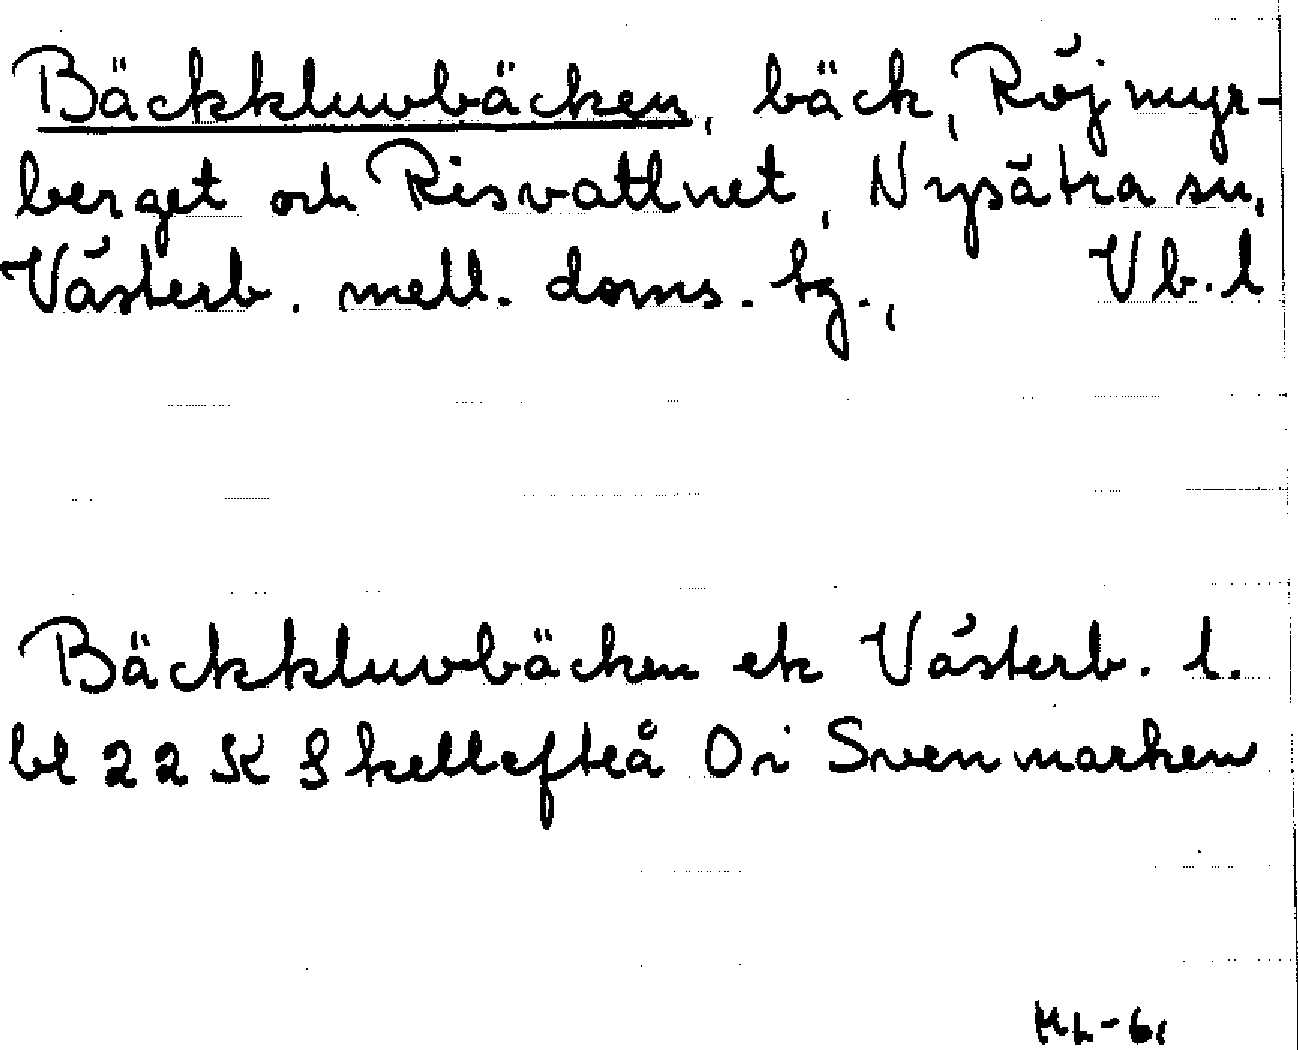 Bäckkluvbäcken, bäck, Röjmyr-
berget och Risvattnet, Nysätra sn,
Västerb. mell. doms. tg., Vb. l
Bäckkluvbäcken ek Västerb. l.
bl 22 K Skellefteå Oi Svenmarken
HL-61